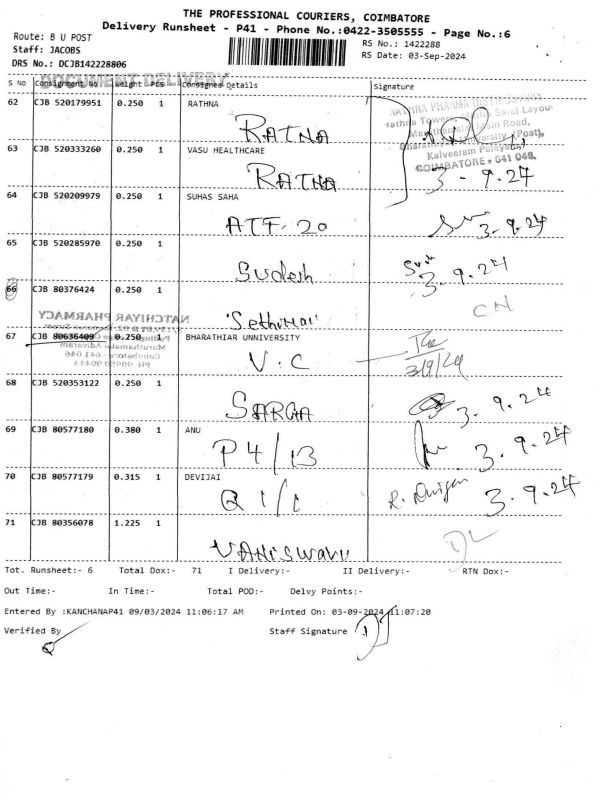 THE PROFESSIONAL COURIERS, COIMBATORE
Delivery Runsheet - P41 - Phone No.:0422-3505555 - Page No.:6
Route: B U POST
RS No.: 1422288
Staff: JACOBS
RS Date: 03-Sep-2024
DRS No.: DCJB142228806
DOCUMENT DELIVERY
S No Consignment No Weight PCS Consignee Details Signature
62 CJB 520179951 0.250 1 RATHNA
RATNA
63 CJB 520333260 0.250 1 VASU HEALTHCARE
RATNA
Kalveeram Palayam,
COIMBATORE - 641 046.
3-9.24
64 CJB 520209979 0.250 1 SUHAS SAHA
ATF-20
3.9.24
65 CJB 520285970 0.250 1
Sudesh
3.9.24
66 CJB 80376424 0.250 1
CN
NATCHIYAR PHARMACY
67 CJB 80636409 0.250 1 BHARATHIAR UNNIVERSITY
V.C
3/9/24
68 CJB 520353122 0.250 1
SARGA
3.9.24
69 CJB 80577180 0.380 1 ANU
P4/13
3.9.24
70 CJB 80577179 0.315 1 DEVIJAI
Q1/1
3.9.24
71 CJB 80356078 1.225 1
DL
Tot. Runsheet:- 6 Total Dox:- 71 I Delivery:- II Delivery:- RTN Dox:-
Out Time:- In Time:- Total POD:- Delvy Points:-
Entered By :KANCHANAP41 09/03/2024 11:06:17 AM Printed On: 03-09-2024 11:07:20
Verified By Staff Signature